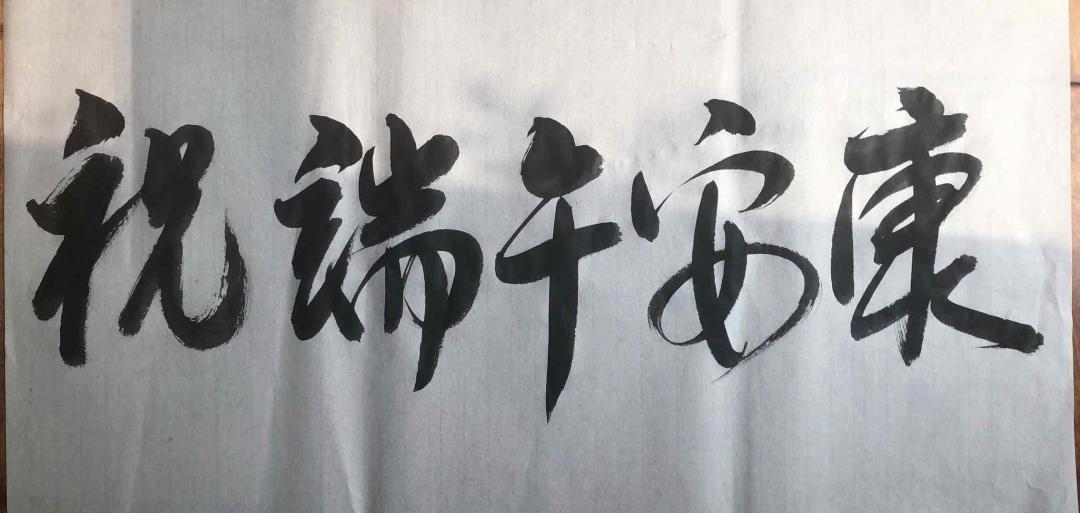 祝端午安康